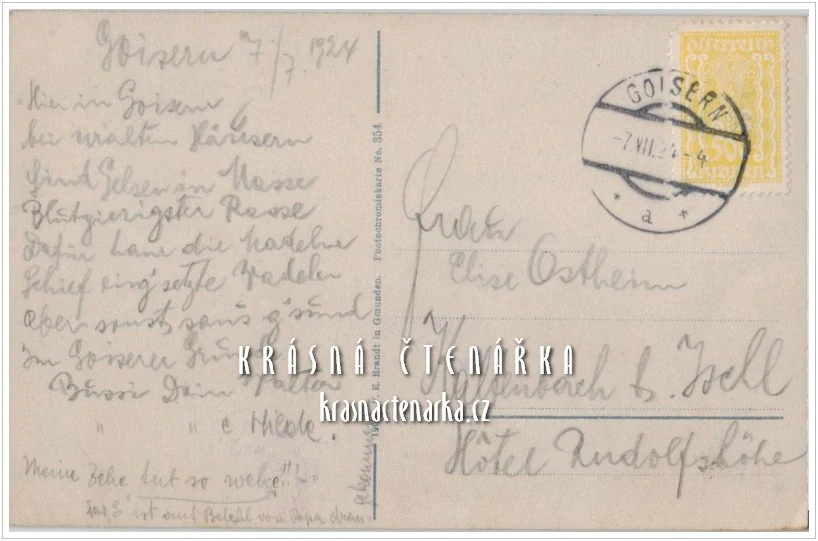 Goisern 7/7. 1924
Hier in Goisern
bei uralten Häusern
Sind Gelsen in Masse
Blutgierigster Rasse
Dafür die Madeln
Schief eing'setzte Wadeln
Aber sonst sans g'sund
Im Goiserer
Bussi Dein Walter
" " e Hilde.
Meine Zehe tut so wehe!!!
Das "E" ist auf Befehl von Papa
E. Brandt in Gmunden. Photochromiekarte No. 354
Österreich
Kronen
GOISERN
-7.VII.24-4
* a *
Frau
Elise Ostheim
b. Ischl
Hôtel Rudolfshöhe
KRÁSNÁ ČTENÁŘKA
krasnactenarka.cz